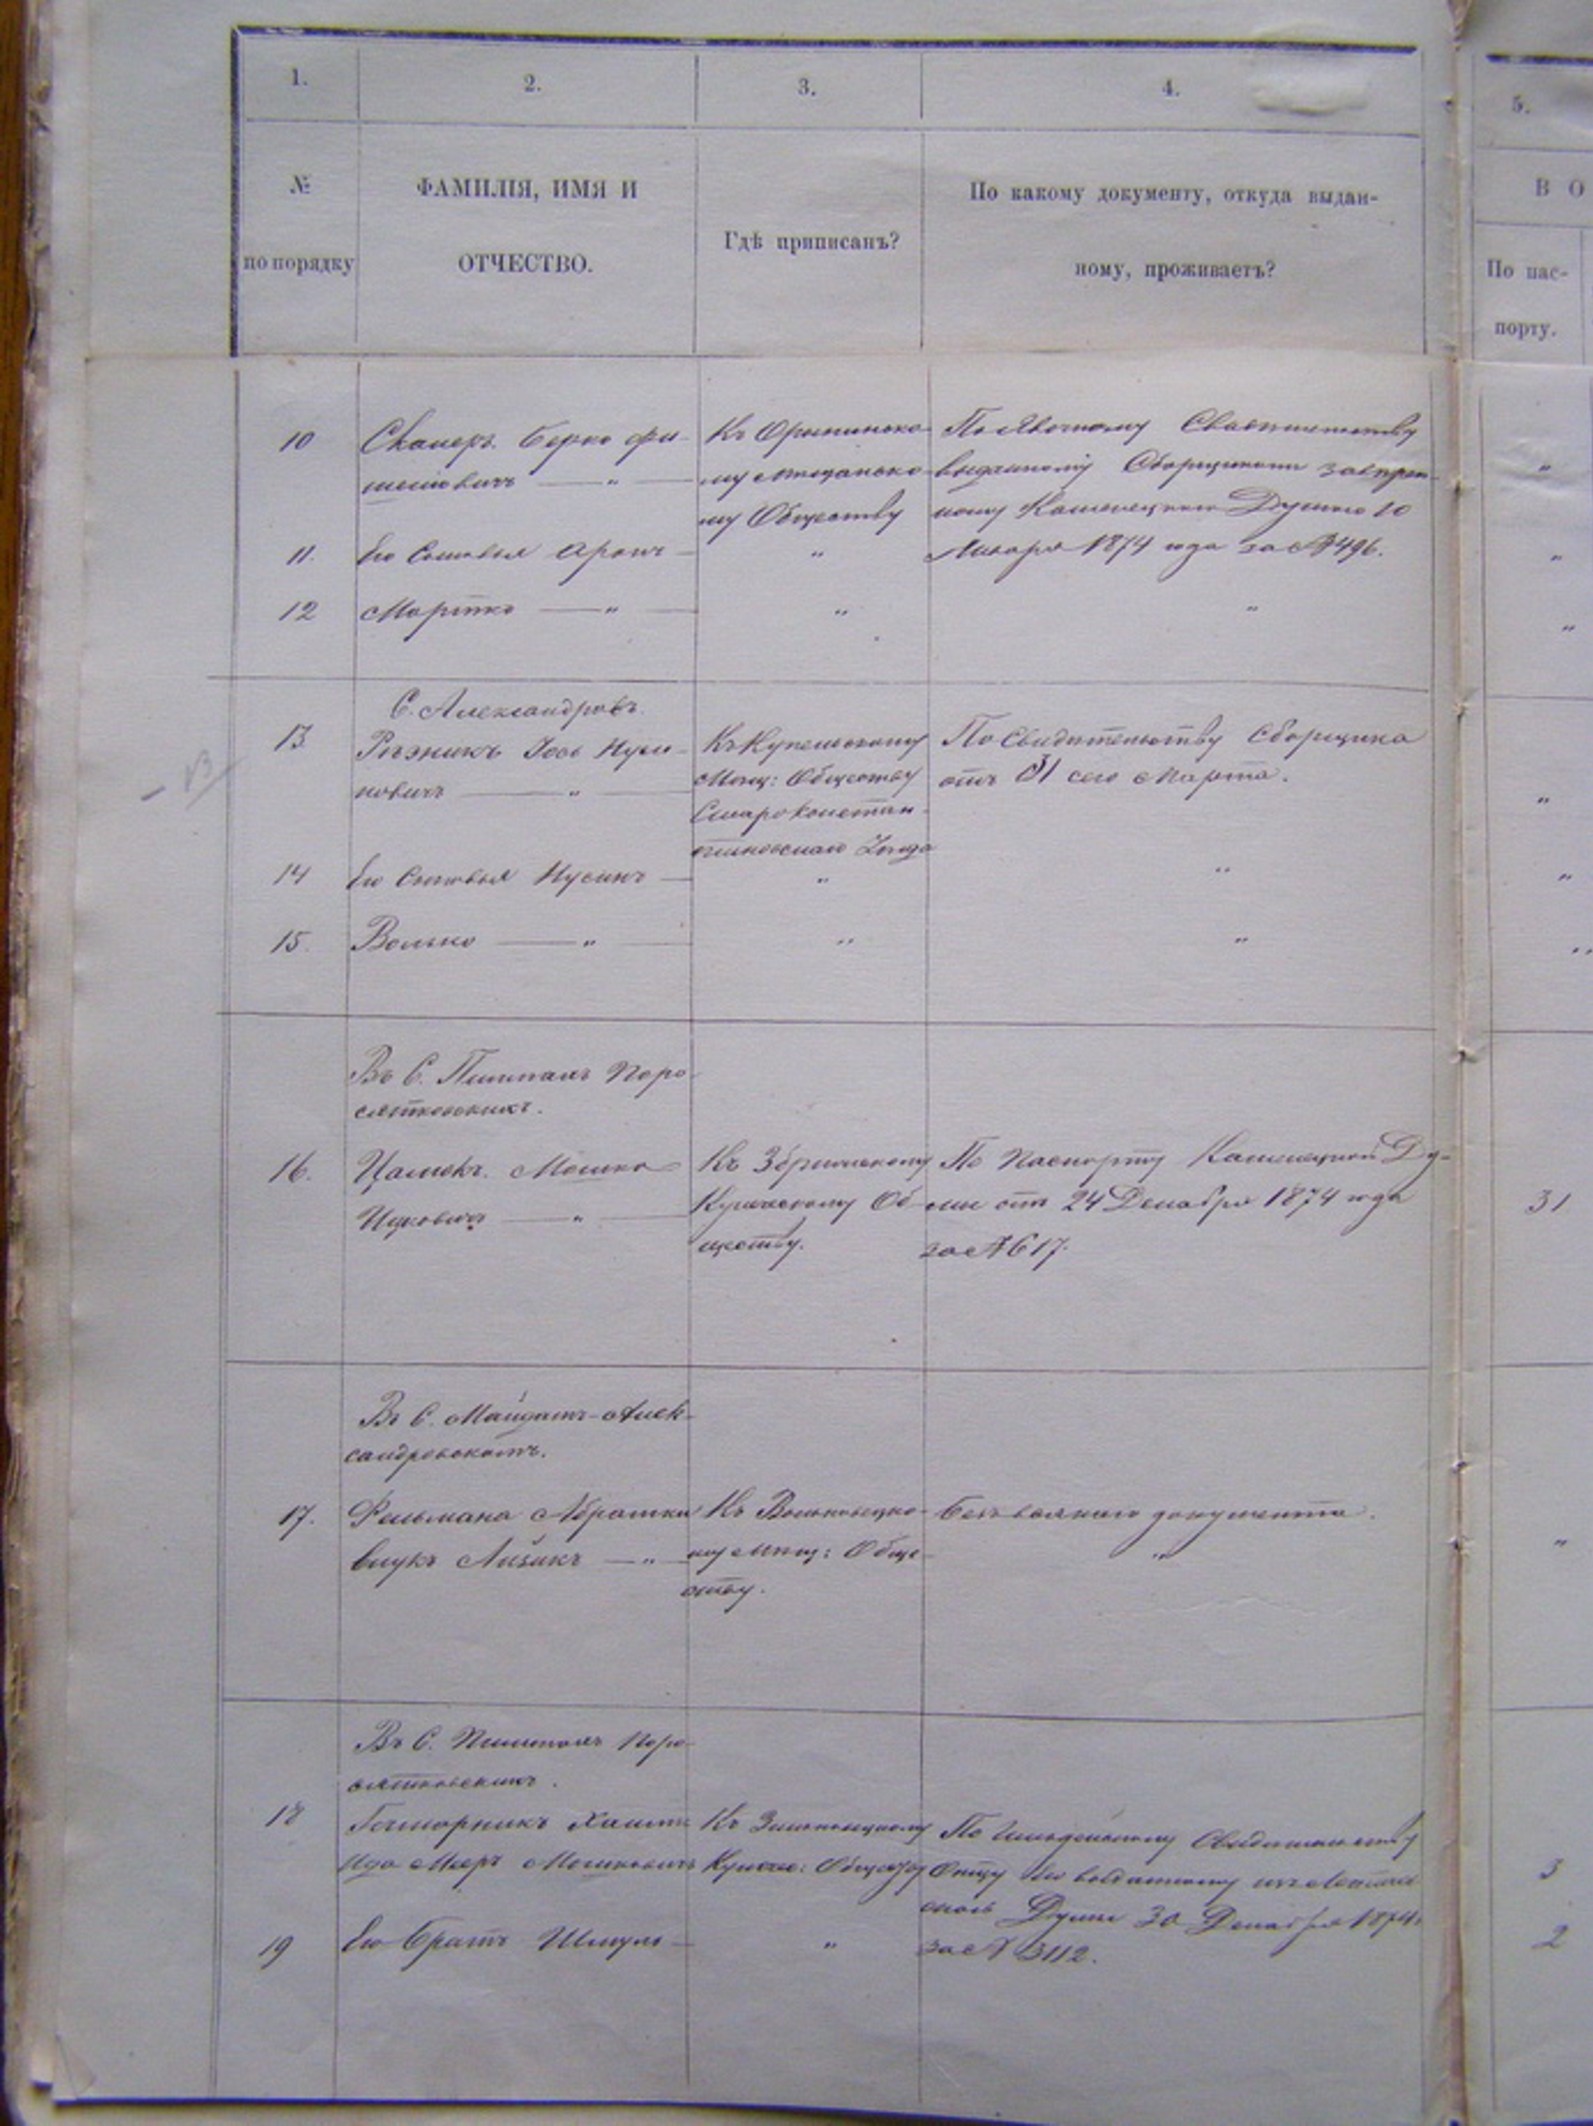 1. 2. 3. 4. 5.
№
по порядку
ФАМИЛІЯ, ИМЯ И
ОТЧЕСТВО.
Гдѣ приписанъ?
По какому документу, откуда выдан-
ному, проживаетъ?
В О
По пас-
порту.
10 Скалеръ Берко Фи-
шелевичъ — „ —
Къ Орынинско-
му Мѣщанско-
му Обществу
По Явочному Свидѣтельству
выданному Сборщикомъ
ному Каменецкою Думою 10
Января 1874 года за № 496.
„
11. Его Сыновья Аронъ —
„
„
12 Мортко — „ —
„
„
„
С. Александровъ.
13 Рѣзникъ Іось Нуси-
новичъ — „ —
Къ Купельскому
Мѣщ: Обществу
Староконстан-
тиновскаго Уѣзда
По Свидѣтельству Сборщика
отъ 31 сего Марта.
„
14 Его Сыновья Нусинъ —
„
„
„
15. Волько — „ —
„
„
„
Въ С. Пилипахъ Поро-
сятковскихъ.
16. Цалекъ Мошко
Ицковичъ — „ —
Къ Збрижскому
Купеческому Об-
ществу.
По Паспорту Каменецкой Ду-
мы отъ 24 Декабря 1874 года
за № 617.
31
Въ С. Майданъ-Алек-
сандровскомъ.
17. Фельмана Абрамки
внукъ Лизикъ — „ —
Къ Вольковецко-
му Мѣщ: Обще-
ству.
Безъ всякаго документа.
„
„
Въ С. Пилипахъ Поро-
сятковскихъ.
18 Хаимъ
Мееръ Мошковичъ
Къ Зиньковецкому
Купече: Обществу
По Гильдейскому Свидѣтельству
Отцу его выданному изъ
Думы 30 Декабря 1874
за № 3112.
3
19 Его братъ Шмуль —
„
2